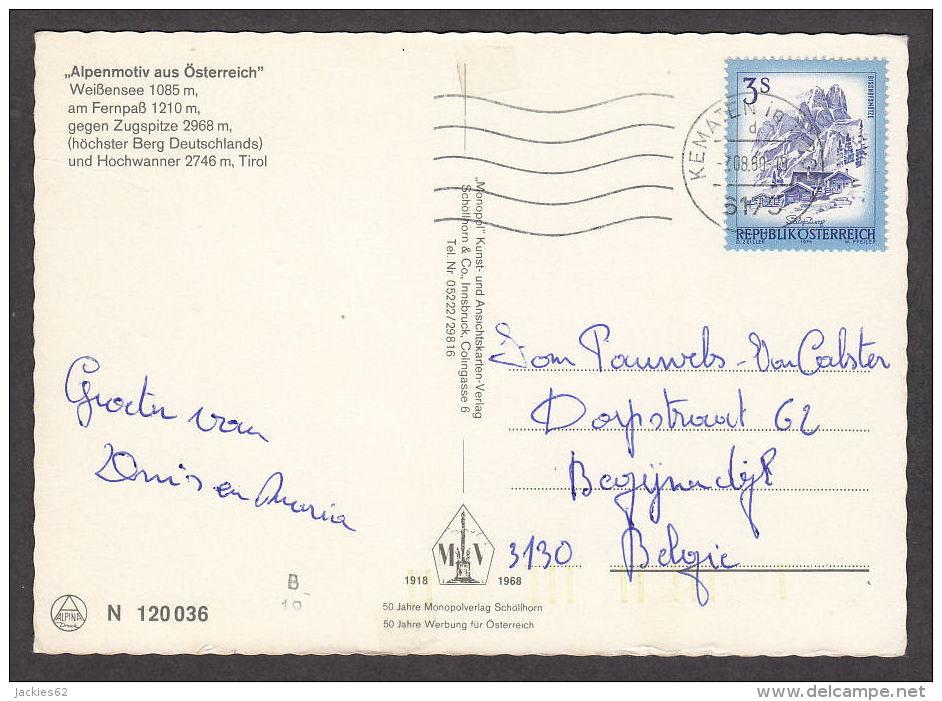 „Alpenmotiv aus Österreich”
Weißensee 1085 m,
am Fernpaß 1210 m,
gegen Zugspitze 2968 m,
(höchster Berg Deutschlands)
und Hochwanner 2746 m, Tirol
3S
BISCHOFSMÜTZE
Salzburg
REPUBLIK ÖSTERREICH
O. ZEILLER 1974 W. PFEILER
KEMATEN in
6175
„Monopol” Kunst- und Ansichtskarten-Verlag
Schöllhorn & Co., Innsbruck, Colingasse 6
Tel. Nr 05222/29816
Groeten van
Denis en Maria
Fam Pauwels-Van Calster
Dorpstraat 62
Begijnendijk
3130 Belgie
M V
1918 1968
50 Jahre Monopolverlag Schöllhorn
50 Jahre Werbung für Österreich
B-
10
ALPINA
Druck
N 120036
Jackies62
delcampe.net